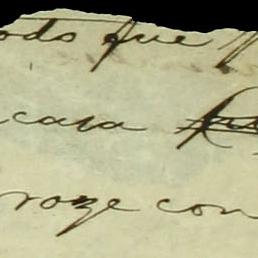 odo que
casa
roze con